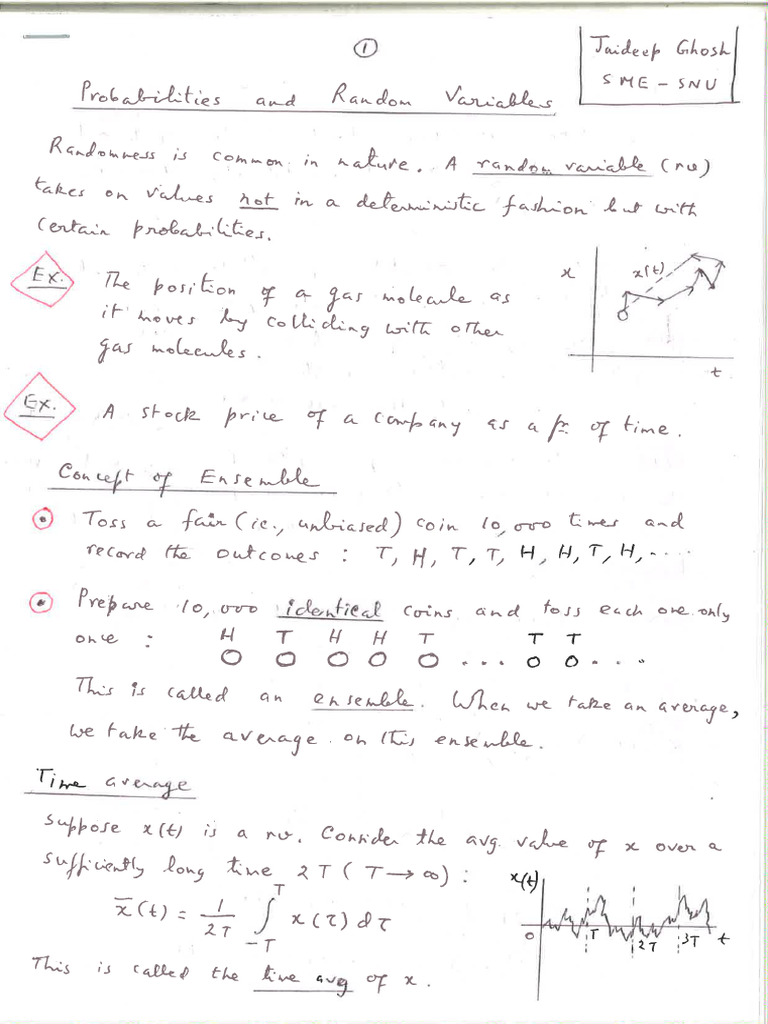 ①
Jaideep Ghosh
SME - SNU
Probabilities and Random Variables
Randomness is common in nature. A random variable (rv)
takes on values not in a deterministic fashion but with
certain probabilities.
Ex.
The position of a gas molecule as
it moves by colliding with other
gas molecules.
x
x(t)
t
Ex.
A stock price of a company as a fn. of time.
Concept of Ensemble
Toss a fair (ie., unbiased) coin 10,000 times and
record the outcomes : T, H, T, T, H, H, T, H, ....
Prepare 10,000 identical coins and toss each one only
once :
H T H H T ... T T ....
This is called an ensemble. When we take an average,
we take the average on this ensemble.
Time average
Suppose x(t) is a rv. Consider the avg. value of x over a
sufficiently long time 2T ( T → ∞) :
x̄(t) = 1/2T ∫_{-T}^{T} x(τ) dτ
x(t)
0 T 2T 3T t
This is called the time avg of x.